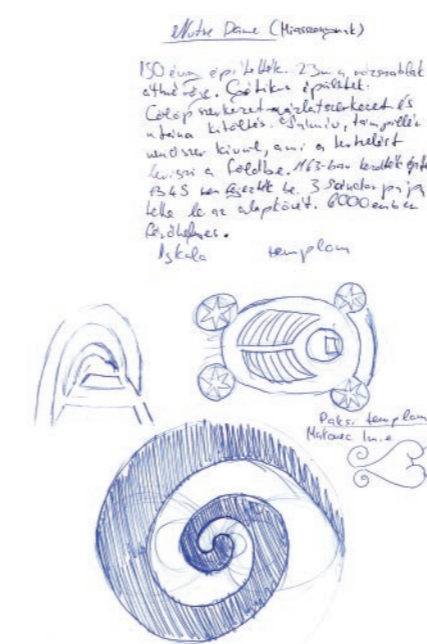 Notre Dame (Miasszonyunk)
150 évig építették. 23m a rózsaablak
átmérője. Gótikus építések.
Cölöp szerkezet-vázlatszerkezet és
utána kitöltés. támpillér
rendszer kívül, ami a terhelést
leviszi a földbe. 1163-ban kezdték
1345 ben fejezték be. 3 Sándor pápa
tette le az alapkövét. 6000 ember
férőhelyes.
templom
Paksi templom
Makovec Imre